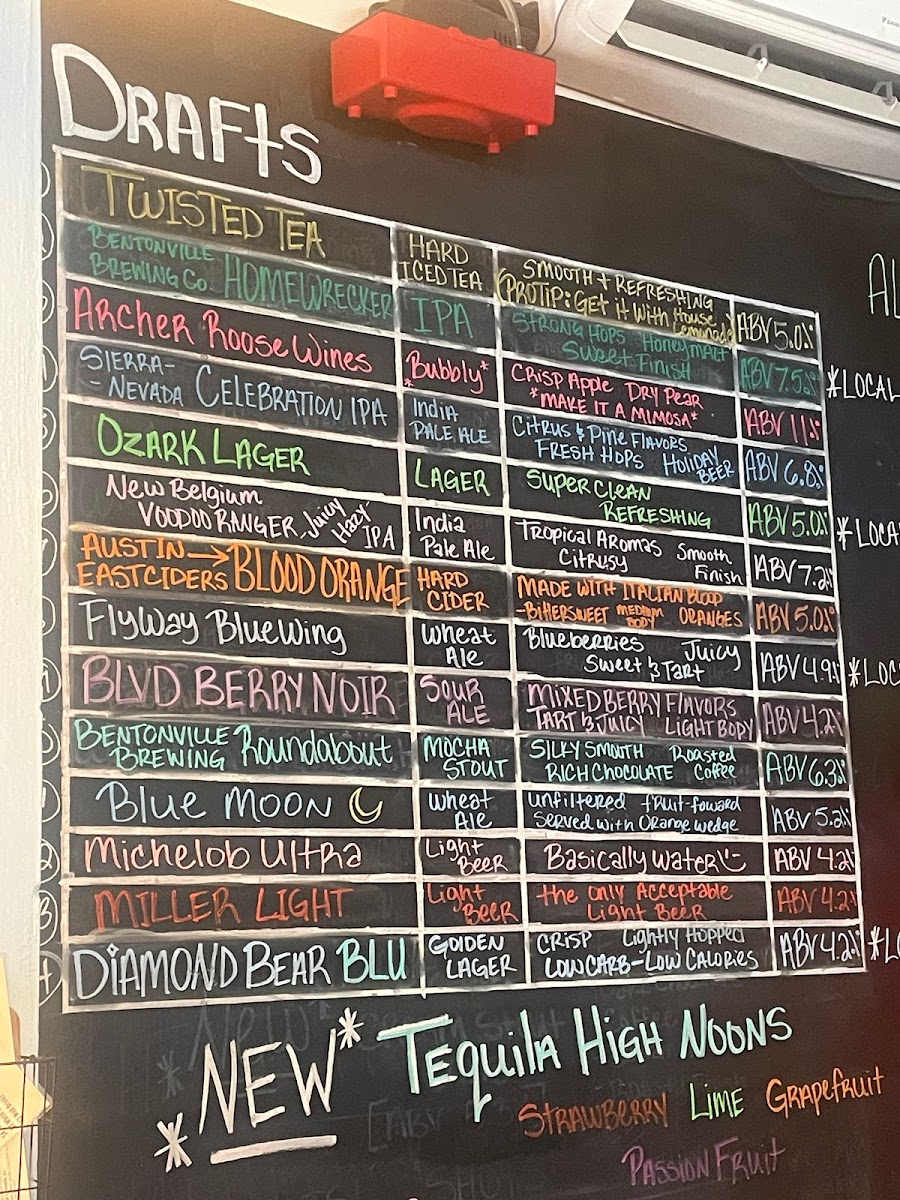 DRAFTS
TWISTED TEA
HARD
ICED TEA
SMOOTH + REFRESHING
(PROTIP: GET IT WITH House
Lemonade)
ABV 5.0%
BENTONVILLE
BREWING CO. HOMEWRECKER
IPA
STRONG HOPS HONEY MALT
Sweet FINISH
ABV 7.5%
*LOCAL
ARCHER ROOSE WINES
*Bubbly*
CRISP APPLE DRY PEAR
*MAKE IT A MIMOSA*
ABV 11%
SIERRA-
-NEVADA CELEBRATION IPA
India
PALE ALE
CITRUS & PINE FLAVORS
FRESH HOPS HOLIDAY
BEER
ABV 6.8%
OZARK LAGER
LAGER
SUPER CLEAN
REFRESHING
ABV 5.0%
*LOCA
New Belgium
VOODOO RANGER - Juicy
Hazy
IPA
India
Pale Ale
Tropical Aromas Smooth
Citrusy Finish
ABV 7.2%
AUSTIN →
EASTCIDERS BLOOD ORANGE
HARD
CIDER
MADE WITH ITALIAN BLOOD
-BITTERSWEET MEDIUM BODY ORANGES
ABV 5.0%
Flyway BlueWing
Wheat
Ale
Blueberries Juicy
Sweet & Tart
ABV 4.9%
*LOC
BLVD BERRY NOIR
SOUR
ALE
MIXED BERRY FLAVORS
TART & JUICY LIGHT BODY
ABV 4.2%
BENTONVILLE
BREWING Roundabout
MOCHA
STOUT
SILKY SMOOTH Roasted
RICH CHOCOLATE Coffee
ABV 6.3%
Blue Moon
Wheat
Ale
unfiltered fruit-foward
Served with Orange wedge
ABV 5.2%
Michelob Ultra
Light
Beer
Basically water!
ABV 4.2%
MILLER LIGHT
Light
Beer
the only Acceptable
Light Beer
ABV 4.2%
DIAMOND BEAR BLU
GOLDEN
LAGER
CRISP Lightly Hopped
LOW CARB-LOW CALORIES
ABV 4.2%
*LO
*NEW* TEQUILA HIGH NOONS
STRAWBERRY LIME GRAPEFRUIT
PASSION FRUIT